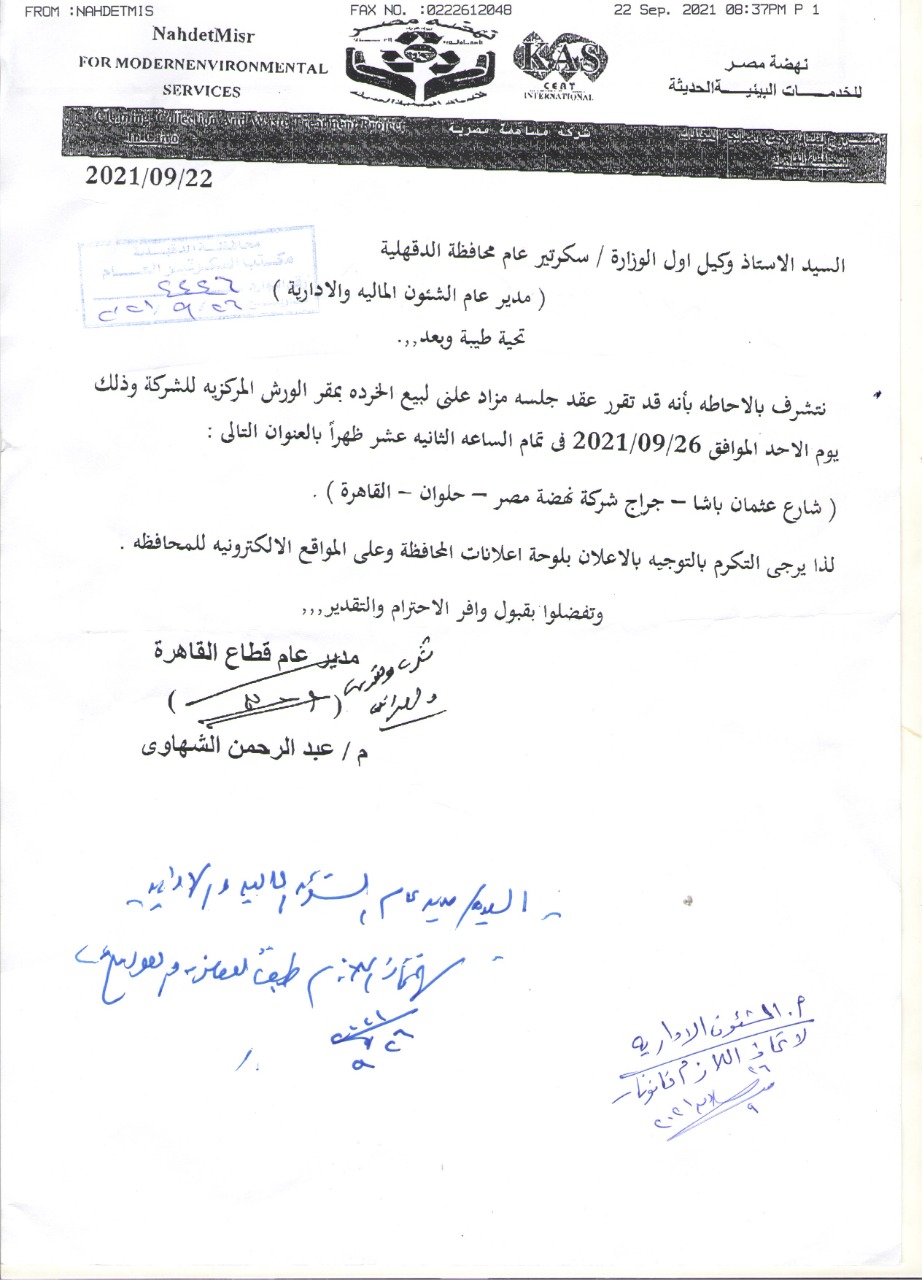 FROM :NAHDETMIS FAX NO. :0222612048 22 Sep. 2021 08:37PM P 1
NahdetMisr
FOR MODERNENVIRONMENTAL
SERVICES
نهضة مصر
KAS
CERT
INTERNATIONAL
نهضة مصر
للخدمـــات البيئيـــة الحديثة
Cleaning Collection And Waste Treatment Project
In Cairo
شركة مساهمة مصرية
2021/09/22
محافظة الدقهلية
مكتب السكرتير العام
السيد الاستاذ وكيل اول الوزارة / سكرتير عام محافظة الدقهلية
( مدير عام الشئون الماليه والادارية )
تحية طيبة وبعد,,,
نتشرف بالاحاطه بأنه قد تقرر عقد جلسه مزاد علنى لبيع الخرده بمقر الورش المركزيه للشركة وذلك
يوم الاحد الموافق 2021/09/26 فى تمام الساعه الثانيه عشر ظهراً بالعنوان التالى :
( شارع عثمان باشا – جراج شركة نهضة مصر – حلوان – القاهرة ) .
لذا يرجى التكرم بالتوجيه بالاعلان بلوحة اعلانات المحافظة وعلى المواقع الالكترونيه للمحافظه .
وتفضلوا بقبول وافر الاحترام والتقدير,,,
مدير عام قطاع القاهرة
م / عبد الرحمن الشهاوى
السيد/ مدير عام الشئون الماليه والاداريه
لاتخاذ اللازم طبقاً
م. الشئون الاداريه
لاتخاذ اللازم قانونا